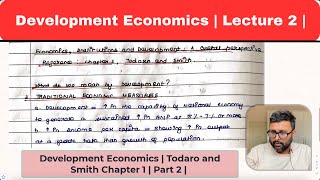 Development Economics | Lecture 2 |
Economics, Institutions and Development : A Global Perspective
Reference : Chapter 1, Todaro and Smith
What do we mean by Development?
TRADITIONAL ECONOMIC MEASURES
a. Development = ↑ in the capacity of national economy
to generate a sustained ↑ in GNP at 5% - 7% or more
b. ↑ in income per capita = showing ↑ in output
at a faster rate than growth of population.
Development Economics | Todaro and
Smith Chapter 1 | Part 2 |